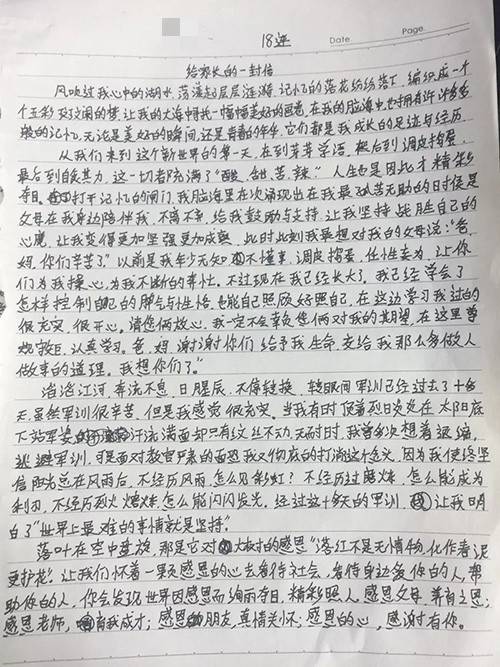 18连
Date
Page
给家长的一封信
风吹过我心中的湖水,荡漾起层层涟漪,记忆的落花纷纷落下,编织成一个
个五彩斑斓的梦,让我的大海中拥一幅幅美好的画卷,在我的脑海中也拥有许许多多
般的记忆,无论是美好的瞬间,还是青春的年华,它们都是我成长的足迹与经历
从我们来到这个新世界的第一天,在到芽芽学语,极后到调皮捣蛋,
最后到自食其力,这一切都充满了"酸、甜、苦、辣"人生也是因此才精彩
夺目,打开记忆的闸门,我脑海里在次涌现出在我最孤苦无助的时侯是
父母在我身边陪伴我,不离不弃,给我鼓励与支持,让我坚持战胜自己的
心魔,让我变得更加坚强更加成熟,此时此刻我最想对我的父母说:"爸,
妈,你们辛苦了"以前是我年少无知,不懂事,调皮捣蛋,任性妄为,让你
们为我操心,为我不断的牵忙。不过现在我已经长大了,我已经学会了
怎样控制自己的脾气与性格,也能自己照顾好照自己,在这边学习我过的
很充实,很开心。请您俩放心,我一定不会辜负您俩对我的期望,在这里尊
敬教官,认真学习。爸,妈,谢谢你们给予我生命,交给我那么多做人
做事的道理。我想你们了。"
滔滔江河,奔流不息,日月星辰,不停转换,转眼间军训已经过去了十多
天,虽然军训很辛苦,但是我感觉很充实。当我有时顶着烈日炎炎在太阳底
下站军姿,汗流满面却只有纹丝不动,无时时,我曾多次想着退缩,
逃避军训,可是面对教官严肃的面孔我又彻底的打消这个念头,因为我使终坚
信阳光总在风雨后,不经历风雨,怎么见彩虹?不经历过磨炼,怎么能成为
利刃,不经历烈火燃烧,怎么能闪闪发光,经过这十多天的军训,让我明
白了"世界上最难的事情就是坚持"。
落叶在空中盘旋,那是它对大树的感恩"落红不是无情物,化作春泥
更护花",让我们怀着一颗感恩的心去看待社会,看待身边爱你的人,帮
助你的人,你会发现世界因感恩而绚丽夺目,精彩照人。感恩父母,养育之恩;
感恩老师,育我成才;感恩朋友,真情关怀;感恩的心,感谢有你。